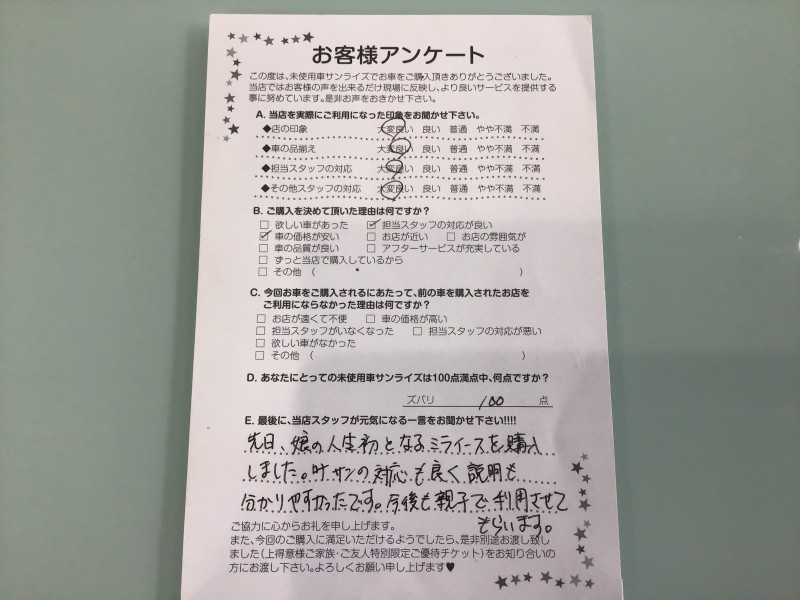 お客様アンケート
この度は、未使用車サンライズでお車をご購入頂きありがとうございました。
当店ではお客様の声を出来るだけ現場に反映し、より良いサービスを提供する
事に努めています。是非お声をおきかせ下さい。
A. 当店を実際にご利用になった印象をお聞かせ下さい。
◆店の印象 大変良い 良い 普通 やや不満 不満
◆車の品揃え 大変良い 良い 普通 やや不満 不満
◆担当スタッフの対応 大変良い 良い 普通 やや不満 不満
◆その他スタッフの対応 大変良い 良い 普通 やや不満 不満
B. ご購入を決めて頂いた理由は何ですか？
□ 欲しい車があった ☑ 担当スタッフの対応が良い
☑ 車の価格が安い □ お店が近い □ お店の雰囲気が
□ 車の品質が良い □ アフターサービスが充実している
□ ずっと当店で購入しているから
□ その他（ ）
C. 今回お車をご購入されるにあたって、前の車を購入されたお店を
ご利用にならなかった理由は何ですか？
□ お店が遠くて不便 □ 車の価格が高い
□ 担当スタッフがいなくなった □ 担当スタッフの対応が悪い
□ 欲しい車がなかった
□ その他（ ）
D. あなたにとっての未使用車サンライズは100点満点中、何点ですか？
ズバリ 100 点
E. 最後に、当店スタッフが元気になる一言をお聞かせ下さい!!!!
先日、娘の人生初となるミライースを購入
しました。叶サンの対応も良く説明も
分かりやすかったです。今後も親子で利用させて
もらいます。
ご協力に心からお礼を申し上げます。
また、今回のご購入に満足いただけるようでしたら、是非別途お渡し致し
ました（上得意様ご家族・ご友人特別限定ご優待チケット）をお知り合いの
方にお渡し下さい。よろしくお願い申し上げます♥